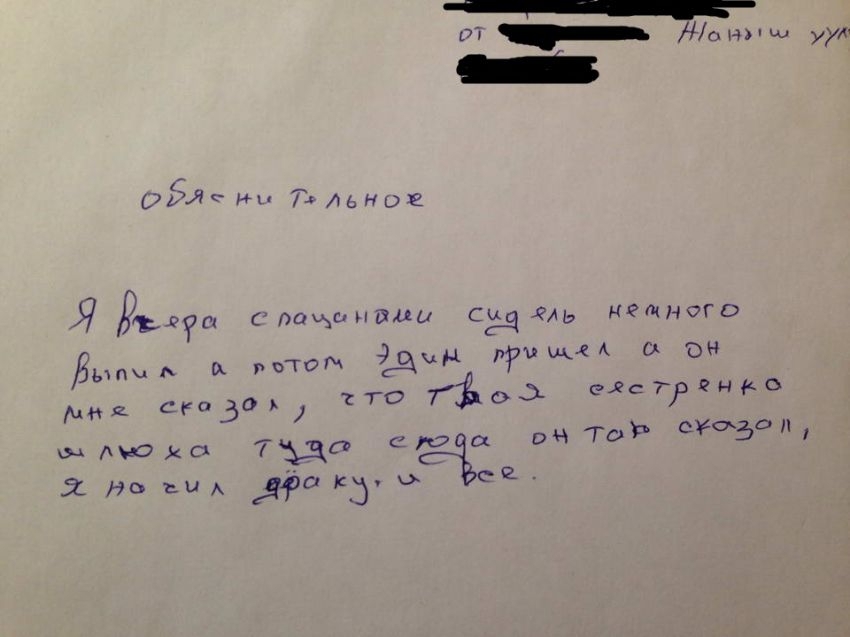 от Жаныш уул
обяснительное
Я вчера спацанами сидель немного
выпил а потом Эдим пришел а он
мне сказал, что твоя сестренка
шлюха туда сюда он так сказал,
я начил драку. и все.